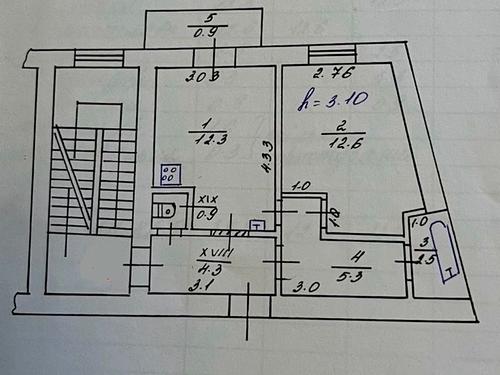 5
0.9
3.03
2.76
h = 3.10
1
12.3
2
12.6
4.33
1.0
XIX
0.9
1.0
1.0
3
2.5
XVIII
4.3
4
5.3
3.1
3.0